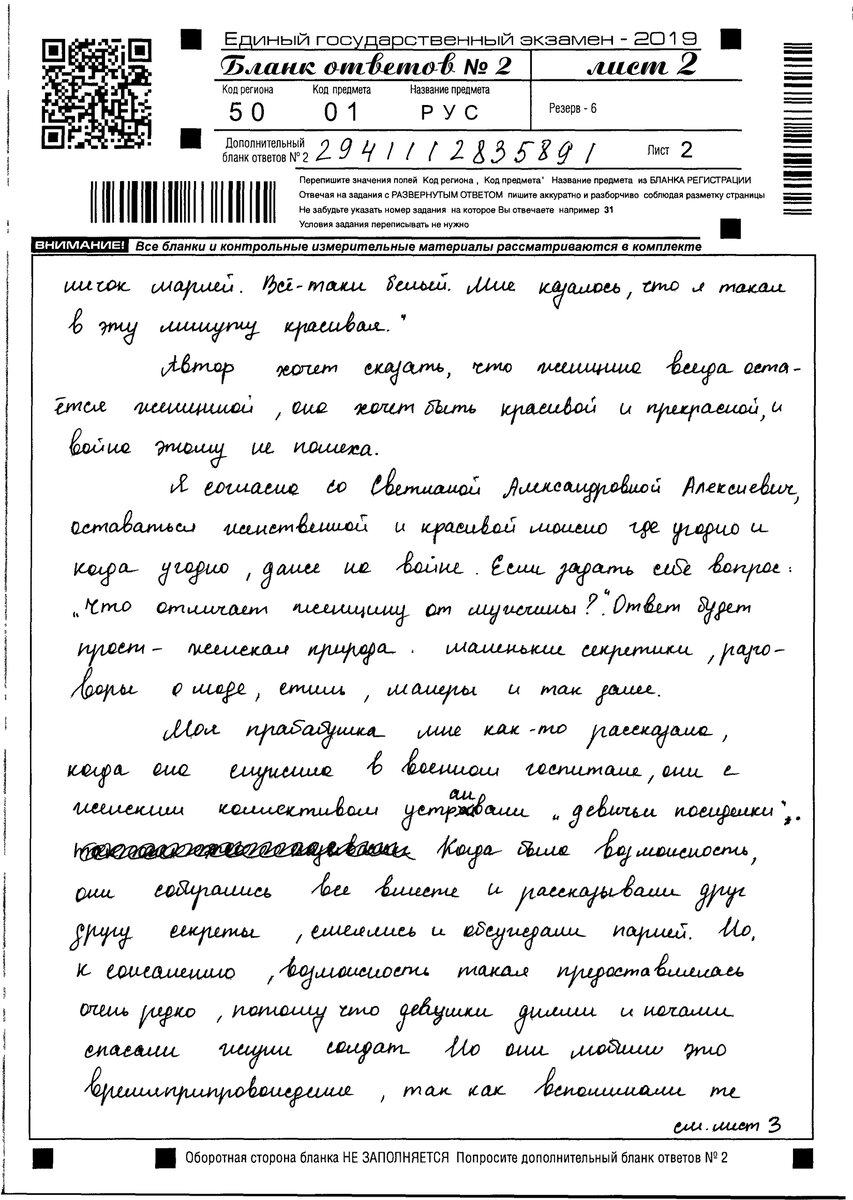 Единый государственный экзамен - 2019
Бланк ответов № 2 лист 2
Код региона Код предмета Название предмета
50 01 РУС Резерв - 6
Дополнительный
бланк ответов № 2 2941112835891 Лист 2
Перепишите значения полей Код региона , Код предмета' Название предмета из БЛАНКА РЕГИСТРАЦИИ
Отвечая на задания с РАЗВЕРНУТЫМ ОТВЕТОМ пишите аккуратно и разборчиво соблюдая разметку страницы
Не забудьте указать номер задания на которое Вы отвечаете например 31
Условия задания переписывать не нужно
ВНИМАНИЕ! Все бланки и контрольные измерительные материалы рассматриваются в комплекте
ничок марлей. Всё-таки белый. Мне казалось, что я такая
в эту минуту красивая."
Автор хочет сказать, что женщина всегда оста-
ётся женщиной, она хочет быть красивой и прекрасной, и
война этому не помеха.
Я согласна со Светланой Александровной Алексиевич,
оставаться женственной и красивой можно где угодно и
когда угодно, даже на войне. Если задать себе вопрос:
„Что отличает женщину от мужчины?". Ответ будет
прост - женская природа. маленькие секретики, разго-
воры о моде, стиль, манеры и так далее.
Моя прабабушка мне как-то рассказала,
когда она служила в военном госпитале, они с
женским коллективом устраивали „девичьи посиделки",.
Когда была возможность,
они собирались все вместе и рассказывали друг
другу секреты, смеялись и обсуждали парней. Но,
к сожалению, возможность такая предоставлялась
очень редко, потому что девушки днями и ночами
спасали жизни солдат Но они любили это
времяприпровождение, так как вспоминали те
см. лист 3
Оборотная сторона бланка НЕ ЗАПОЛНЯЕТСЯ Попросите дополнительный бланк ответов № 2